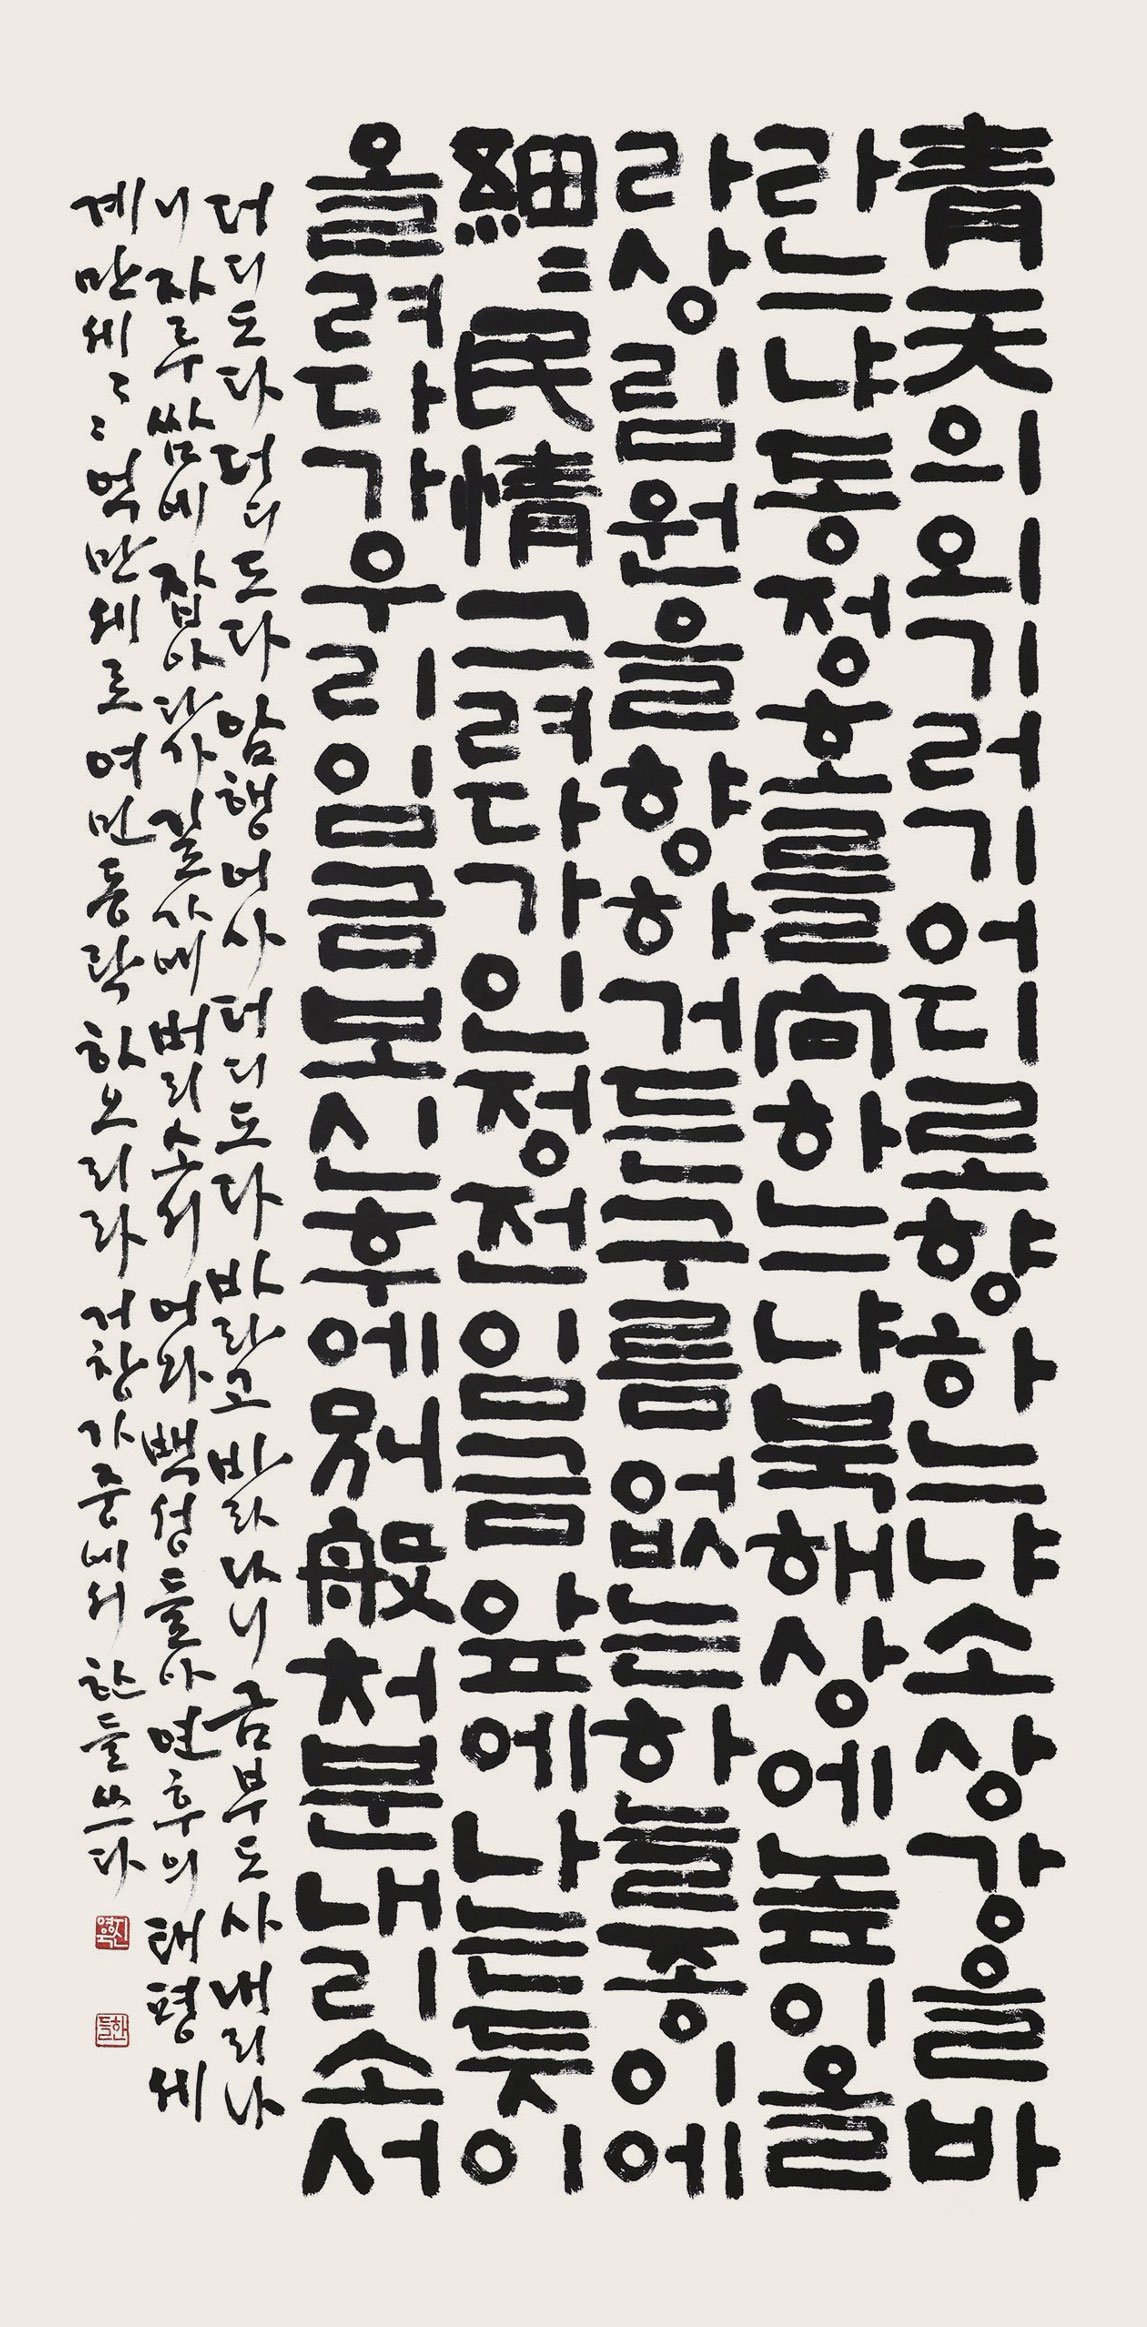 青天의외기러기어디로향하느냐소상강을바
라느냐동정호를向하느냐북해상에높이올
라상림원을향하거든구름없는하늘종이에
細〻民情그려다가인정전임금앞에나는듯이
올려다가우리임금보신후에別般처분내리소서
더디도다더디도다암행어사더디도다바라고바라나니금부도사내리나
니자루쌈에잡아다가길가에버리소서어와백성들아연후의태평세
계만세〻〻억만세로여민동락하오리라거창가중에서한들쓰다
한들